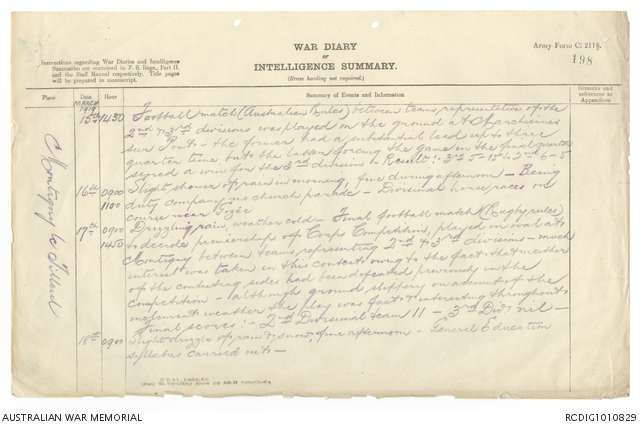 WAR DIARY
OF
INTELLIGENCE SUMMARY.
(Erase heading not required.)
Army Form C. 2118.
198
Instructions regarding War Diaries and Intelligence
Summaries are contained in F. S. Regs., Part II.
and the Staff Manual respectively. Title pages
will be prepared in manuscript.
Place
Date
Hour
Summary of Events and Information
Remarks and
references to
Appendices
MARCH
1919
Montigny le Tilleul
15th 1430 Football match (Australian Rules) between teams, representative of the
2nd & 3rd divisions was played on the ground at Marchienne
- the former had a substantial lead up to three
quarter time but the latter forcing the game in the final quarter
scored a win for the 3rd division - Result: 3rd 5-15 2nd 6-8
16th 0900 Slight shower of rain in morning, fine during afternoon - Being
1100 duty company no church parade - Divisional horse races on
course near
17th 0900 Drizzling rain, weather cold - Final football match (Rugby rules)
1430 to decide premiership of Corps Competition, played on oval at
Montigny between teams, representing 2nd & 3rd divisions - much
interest was taken in this contest owing to the fact that neither
of the contesting sides had been defeated previously in the
competition - although ground slippery on account of the
weather the play was fast & interesting throughout
Final scores: - 2nd Divisional team 11 - 3rd Div nil -
18th 0900 Slight drizzle of rain & snow, fine afternoon - General Education
syllabus carried out -
AUSTRALIAN WAR MEMORIAL
RCDIG1010829